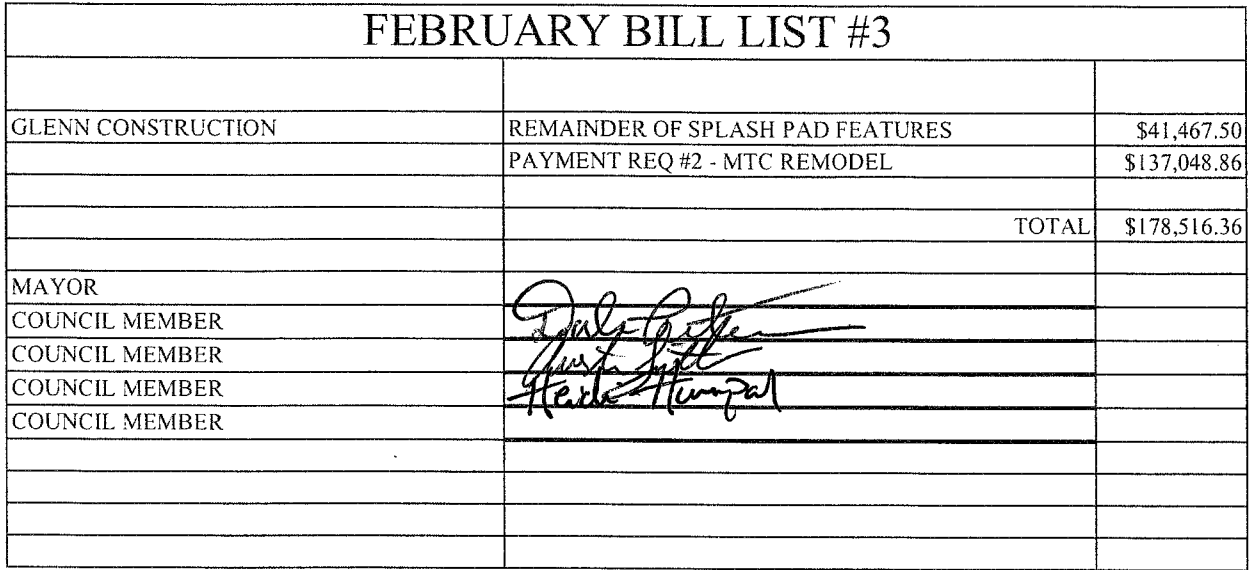 FEBRUARY BILL LIST #3
GLENN CONSTRUCTION REMAINDER OF SPLASH PAD FEATURES $41,467.50
PAYMENT REQ #2 - MTC REMODEL $137,048.86
TOTAL $178,516.36
MAYOR
COUNCIL MEMBER
COUNCIL MEMBER
COUNCIL MEMBER Heidi Humpal
COUNCIL MEMBER